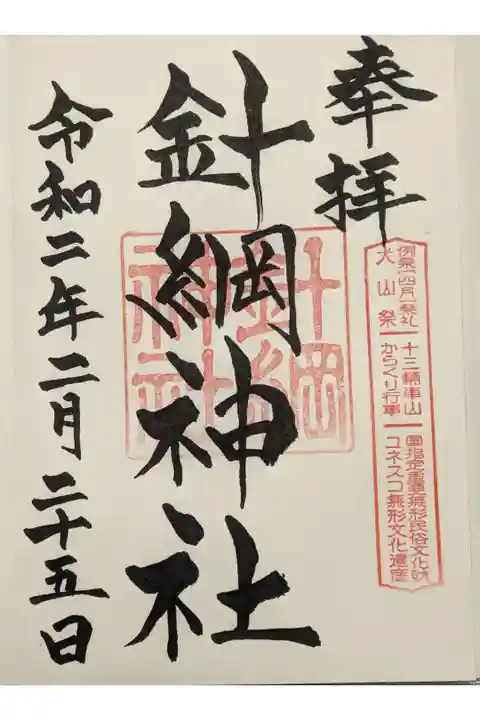 奉拝
例祭四月祭礼
犬山祭
十三輌車山
からくり行事
国指定重要無形民俗文化財
ユネスコ無形文化遺産
針綱神社
針綱
神社
令和二年二月二十五日